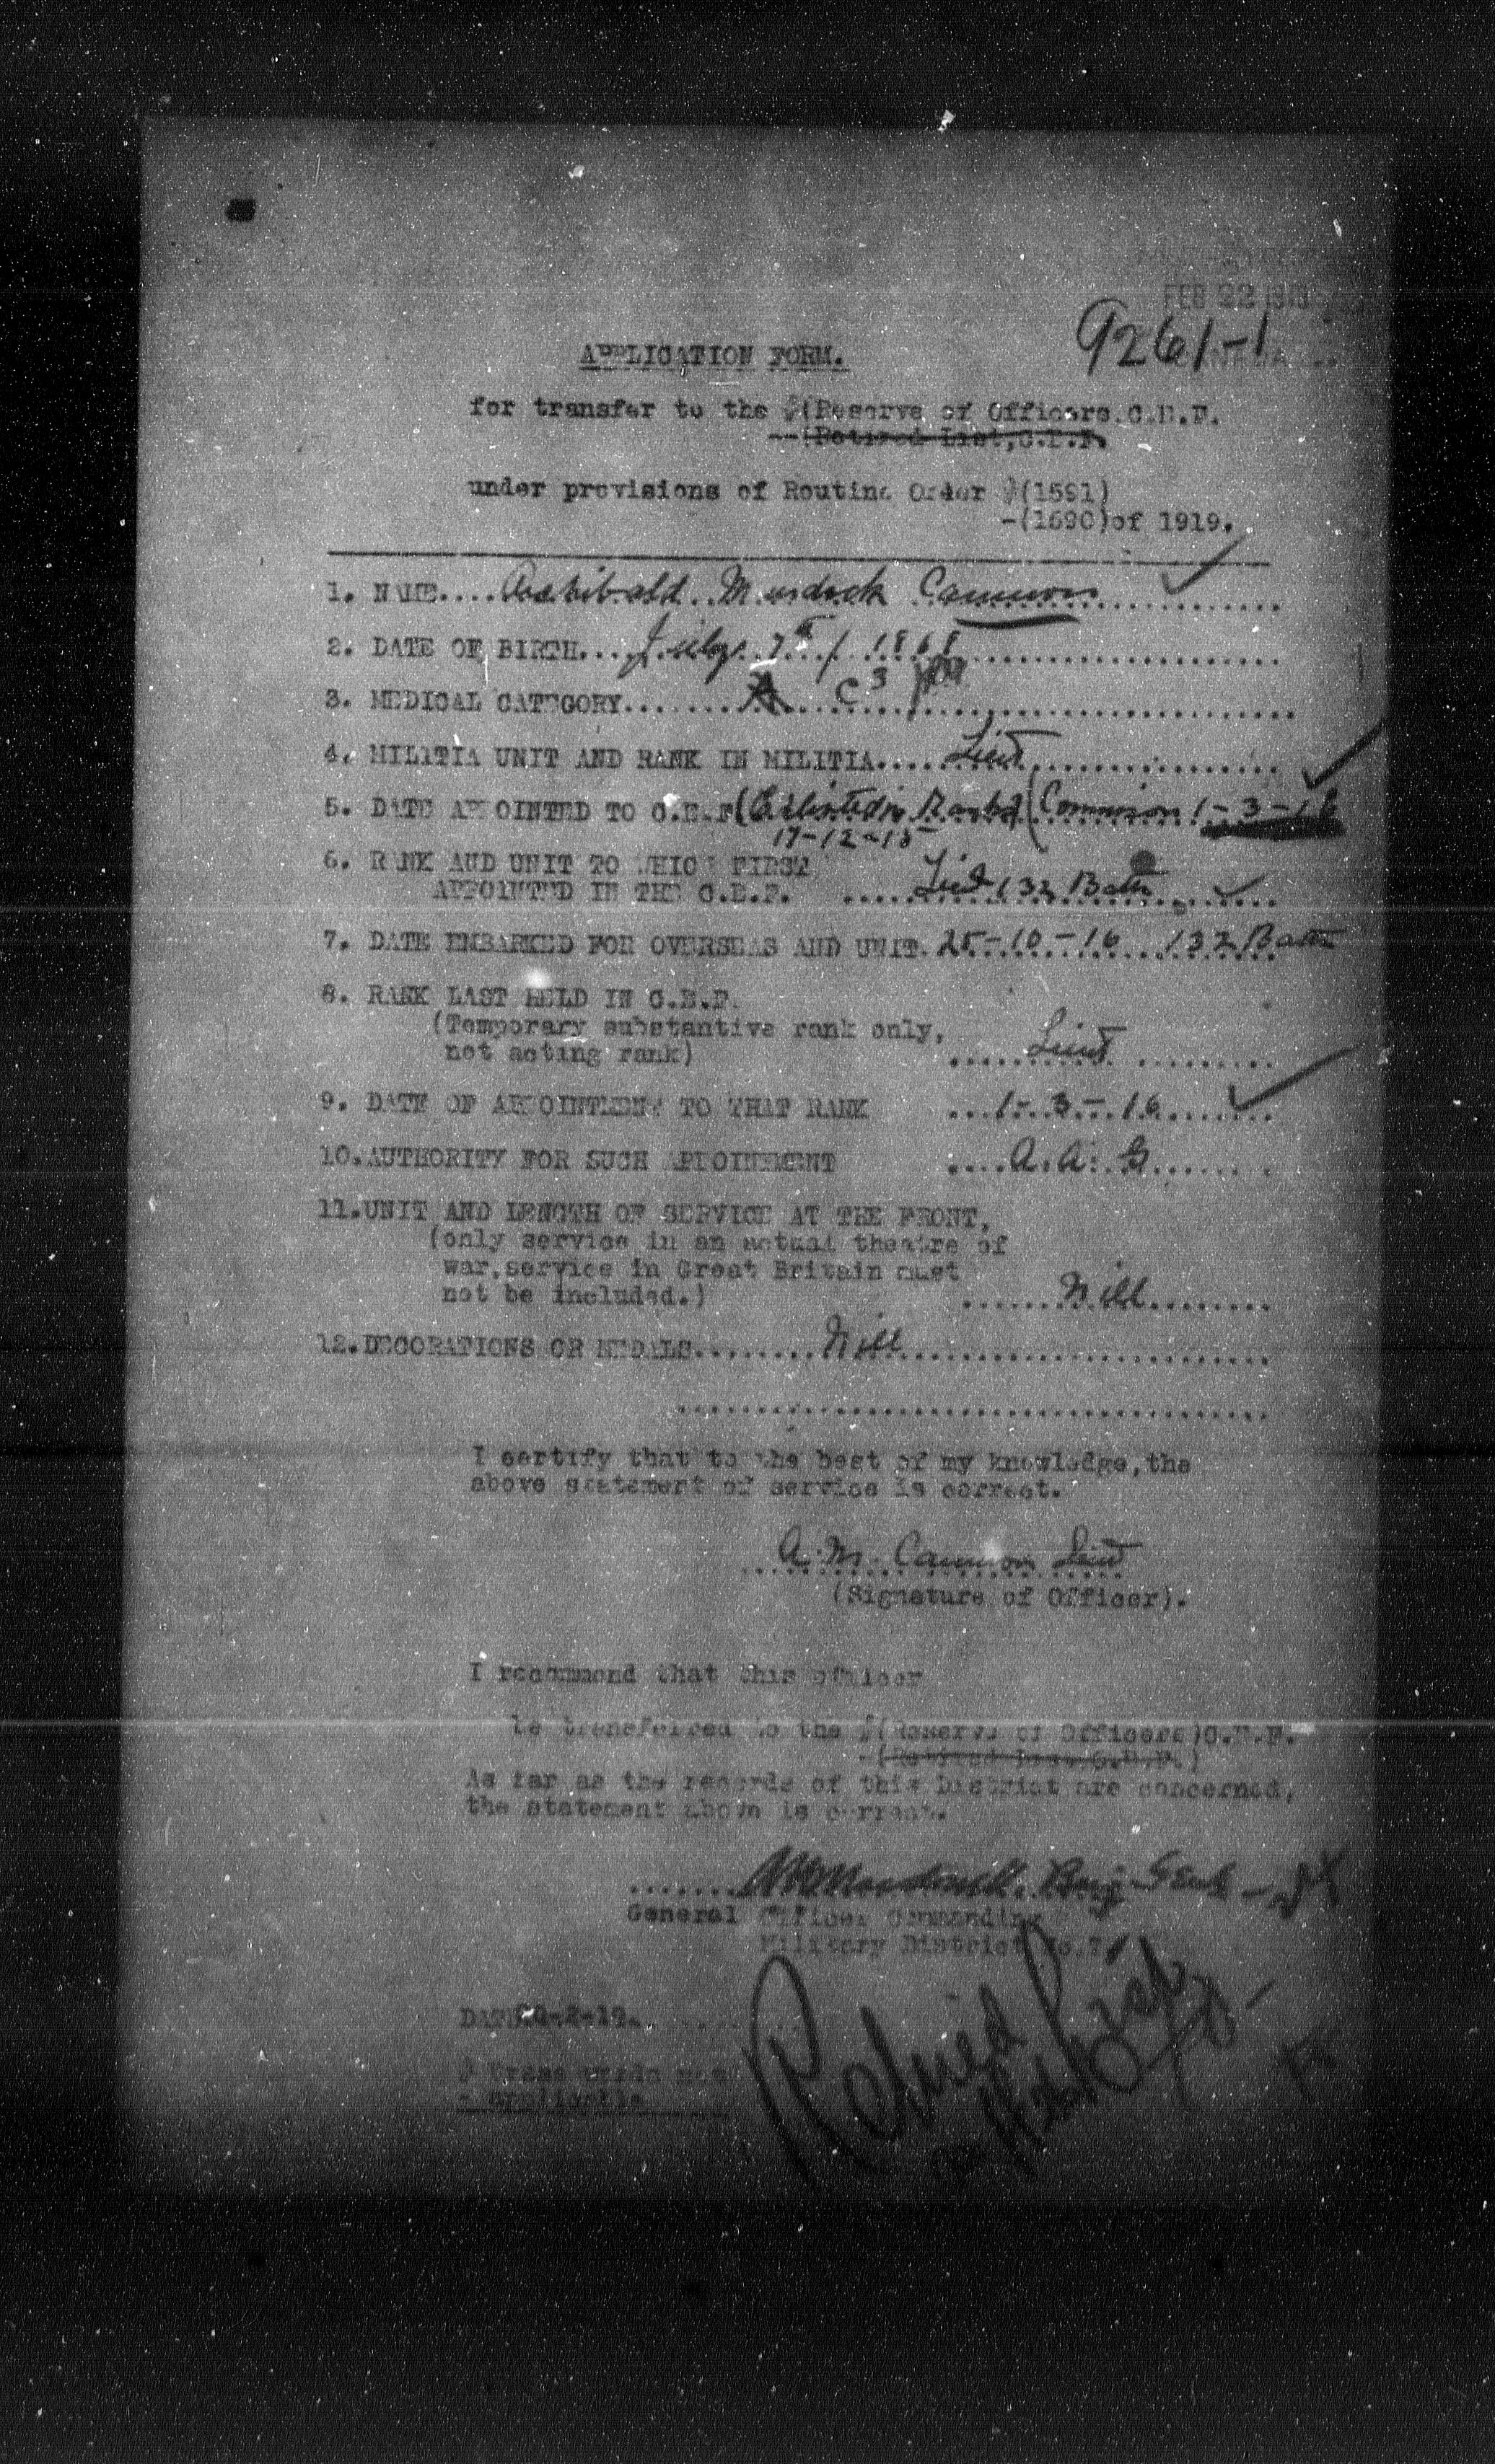 FEB 22 1919
9261-1
APPLICATION FORM.
for transfer to the #(Reserve of Officers.C.E.F.
--(Retired List,C.E.F.
under provisions of Routine Order #(1591)
-(1690)of 1919.
1. NAME.... Archibald Murdock Cameron
2. DATE OF BIRTH.... July 7th / 1868
3. MEDICAL CATEGORY....... A C3
4. MILITIA UNIT AND RANK IN MILITIA.... Lieut
5. DATE APPOINTED TO C.E.F (Enlisted in Ranks) (Commison 1-3-16
17-12-15
6. RANK AND UNIT TO WHICH FIRST
APPOINTED IN THE C.E.F. .... Lieut 132 Battn
7. DATE EMBARKED FOR OVERSEAS AND UNIT. 25-10-16 132 Battn
8. RANK LAST HELD IN C.E.F.
(Temporary substantive rank only,
not acting rank) ..... Lieut
9. DATE OF APPOINTMENT TO THAT RANK ... 1-3-16
10.AUTHORITY FOR SUCH APPOINTMENT .... A.A.G.
11.UNIT AND LENGTH OF SERVICE AT THE FRONT,
(only service in an actual theatre of
war,service in Great Britain must
not be included.) ....... Nill
12.DECORATIONS OR MEDALS........ Nill
I certify that to the best of my knowledge,the
above statement of service is correct.
A. M. Cameron Lieut
(Signature of Officer).
I recommend that this officer
be transferred to the #(Reserve of Officers)C.E.F.
-(Retired List, C.E.F.)
As far as the records of this District are concerned,
the statement above is correct.
Brig-Genl
General Officer Commanding
Military District No.7
DATE -2-19.
# Erase words not
- applicable
Retired List